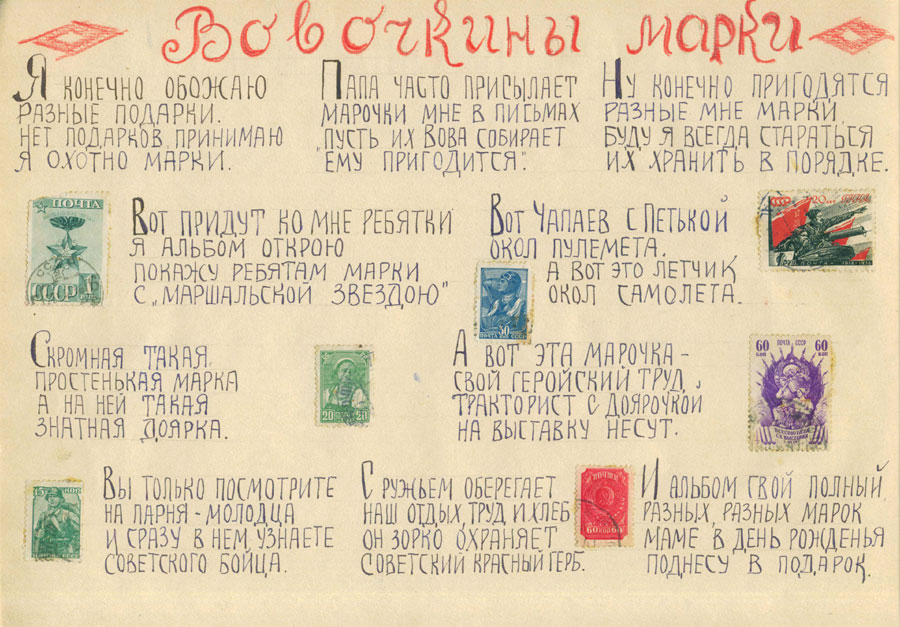 Вовочкины марки
Я конечно обожаю
разные подарки.
Нет подарков, принимаю
я охотно марки.
Папа часто присылает
марочки мне в письмах
"Пусть их Вова собирает
ему пригодится".
Ну конечно пригодятся
разные мне марки,
буду я всегда стараться
их хранить в порядке.
ПОЧТА
СССР
Вот придут ко мне ребятки
я альбом открою
покажу ребятам марки
с "Маршальской звездою"
Вот Чапаев с Петькой
окол пулемета.
А вот это летчик
окол самолета.
30
ПОЧТА СССР
СССР
20
Скромная такая,
простенькая марка
а на ней такая
знатная доярка.
20 20
А вот эта марочка -
свой геройский труд,
тракторист с доярочкой
на выставку несут.
60 ПОЧТА СССР 60
КОП КОП
15 КОП
Вы только посмотрите
на парня - молодца
и сразу в нем узнаете
советского бойца.
С ружьем оберегает
наш отдых, труд и хлеб
он зорко охраняет
советский красный герб.
ПОЧТА
60 60
И альбом свой полный
разных, разных марок
маме в день рожденья
поднесу в подарок.